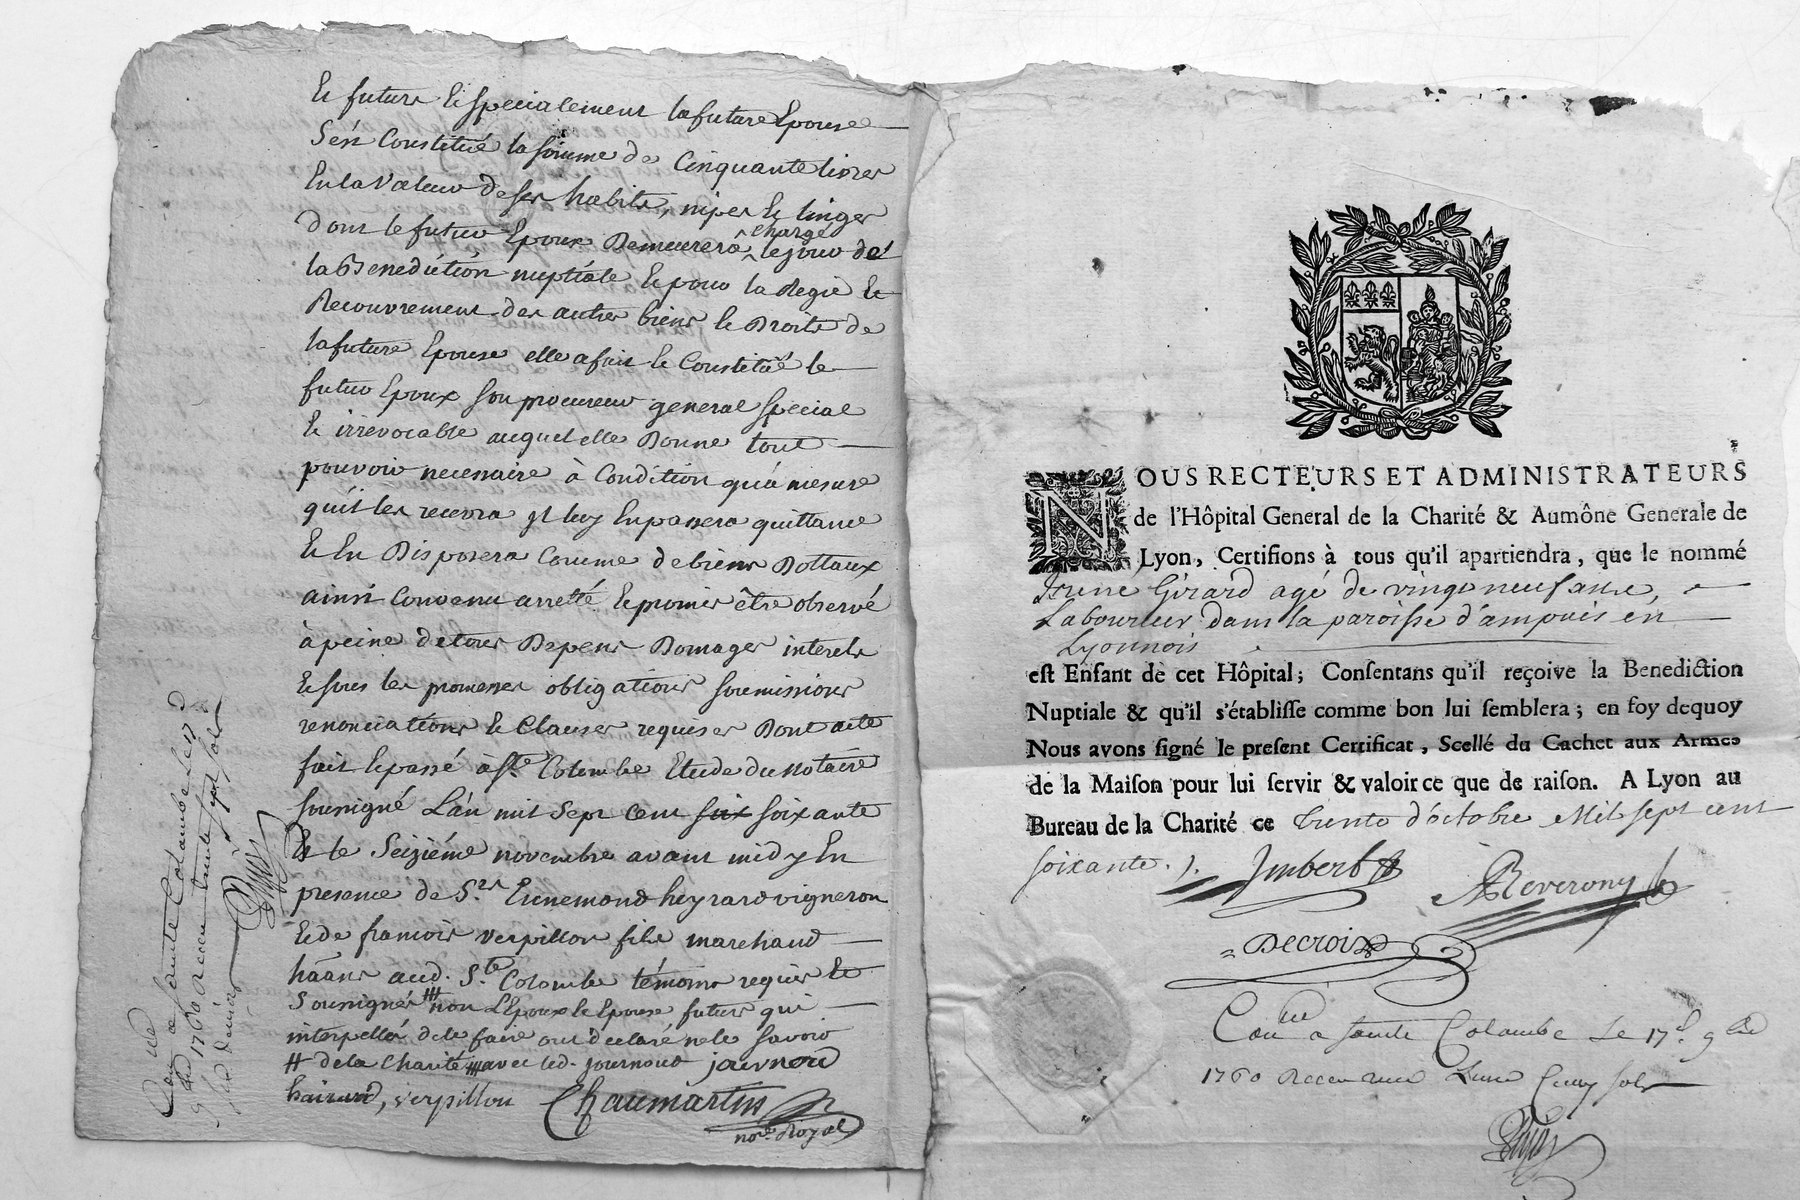 Et futurs Et specialement la future Epouse
S'est Constitué la somme de Cinquante livres
En la Valeur de ses habits, nipes Et linges
Dont le futur Epoux Demeurera chargé le jour de
la Benediction nuptiale Et pour la Regie Et
Recouvrement des autres biens Et Droits de
la future Epouse elle a fait Et Constitué le
futur Epoux son procureur general special
Et irrevocable auquel elle Donne tout
pouvoir necessaire à Condition qu'a mesure
qu'il les recevra il luy En passera quittance
Et En Disposera Comme de biens Dottaux
ainsi Convenu arretté Et promis être observé
à peine de tous Depens Domages interets
Et sous les promesses obligations soumissions
renonciations Et Clauses requises Dont acte
fait Et passé à Ste. Colombe Etude du Notaire
sousigné L'an mil sept cent six soixante
Et le Seizième novembre avant midy En
presence de Srs. Ennemond heyrard vigneron
Et de francois Verpillon fils marchand
aud. Ste Colombe témoins requis Et
Sousignés non L'Epoux Et Epouse futurs qui
interpellés de le faire ont declaré ne le savoir
de la Charité avec led. journoud journoud
hairard, verpillon Chaumartin
nore. Royal
ce Sainte Colombe Le 17
1760 Recu trente sept sols
NOUS RECTEURS ET ADMINISTRATEURS
de l'Hôpital General de la Charité & Aumône Generale de
Lyon, Certifions à tous qu'il apartiendra, que le nommé
Irené Girard agé de vingt neuf ans,
Laboureur dans la paroisse d'ampuis en
Lyonnois
est Enfant de cet Hôpital; Consentans qu'il reçoive la Benediction
Nuptiale & qu'il s'établisse comme bon lui semblera; en foy dequoy
Nous avons signé le present Certificat, Scellé du Cachet aux Armes
de la Maison pour lui servir & valoir ce que de raison. A Lyon au
Bureau de la Charité ce trente d'octobre Mil sept cent
soixante.
Imbert
Reverony
Decroix
Conlle a sainte Colombe Le 17e. 9bre
1760 Recu sols